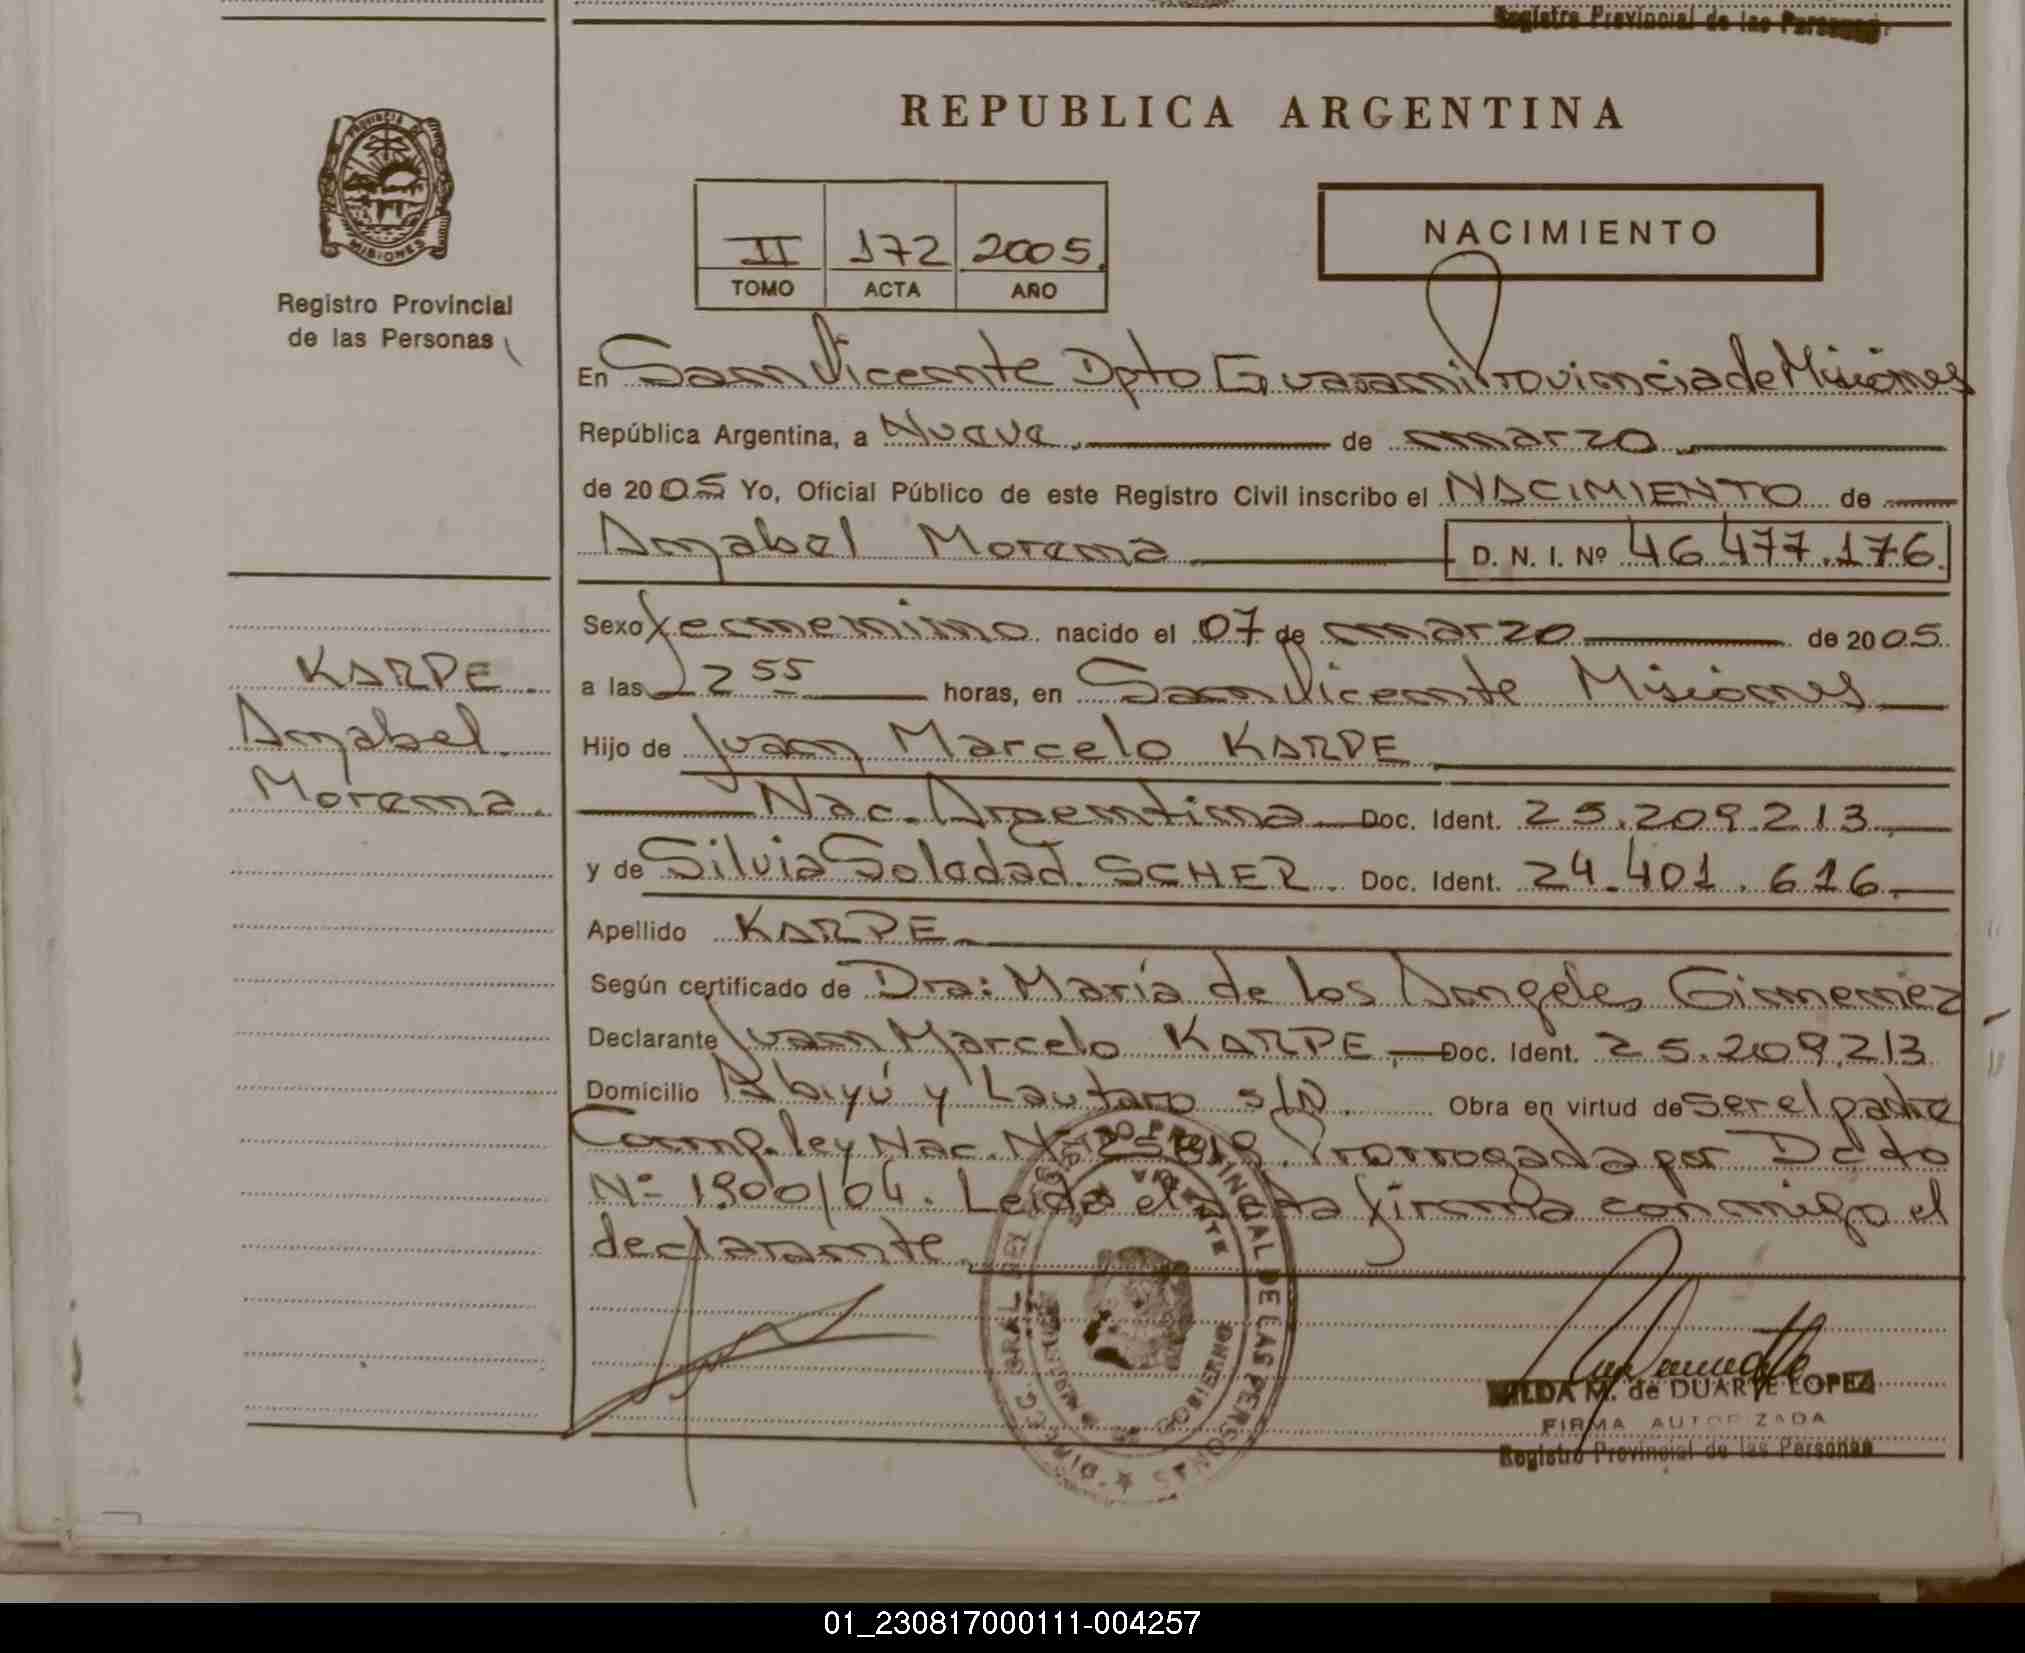 Registro Provincial de las Personas
PROVINCIA DE
MISIONES
Registro Provincial
de las Personas
REPUBLICA ARGENTINA
II 172 2005.
TOMO ACTA AÑO
NACIMIENTO
En San Vicente Dpto Guarani Provincia de Misiones
República Argentina, a Nueve de marzo
de 2005 Yo, Oficial Público de este Registro Civil inscribo el NACIMIENTO de
Anabel Morena D. N. I. Nº 46.477.176.
Sexo femenino nacido el 07 de marzo de 2005.
a las 2 55 horas, en San Vicente Misiones
Hijo de Juan Marcelo KARPE
Nac. Argentina Doc. Ident. 25.209.213
y de Silvia Soledad SCHER. Doc. Ident. 24.401.616
Apellido KARPE
Según certificado de Dra: María de los Angeles Gimenez
Declarante Juan Marcelo KARPE, Doc. Ident. 25.209.213
Domicilio y Lautaro s/N. Obra en virtud de ser el padre
Comp. ley Nac. Nº Prorrogada por Dcto
Nº 1900/04. Leida el acta firma conmigo el
declarante.
KARPE
Anabel
Morena.
REGISTRO PROVINCIAL DE LAS PERSONAS
GOBIERNO
HILDA M. de DUARTE LOPEZ
FIRMA AUTORIZADA
Registro Provincial de las Personas
01_230817000111-004257